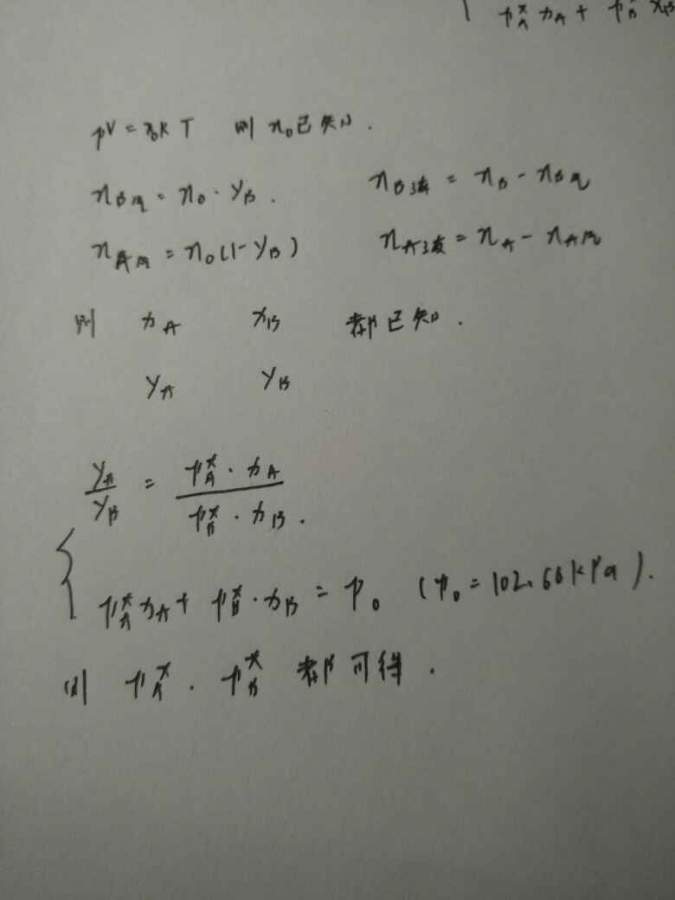 p*A xA + p*B xB
pV = n₀RT 则 n₀已知.
nB气 = n₀·yB. nB液 = nB - nB气
nA气 = n₀(1-yB) nA液 = nA - nA气
则 xA xB 都已知.
yA yB
yA/yB = p*A·xA / p*B·xB.
{ p*A xA + p*B·xB = p₀ (p₀ = 102.66kPa).
则 p*A. p*B 都可得.